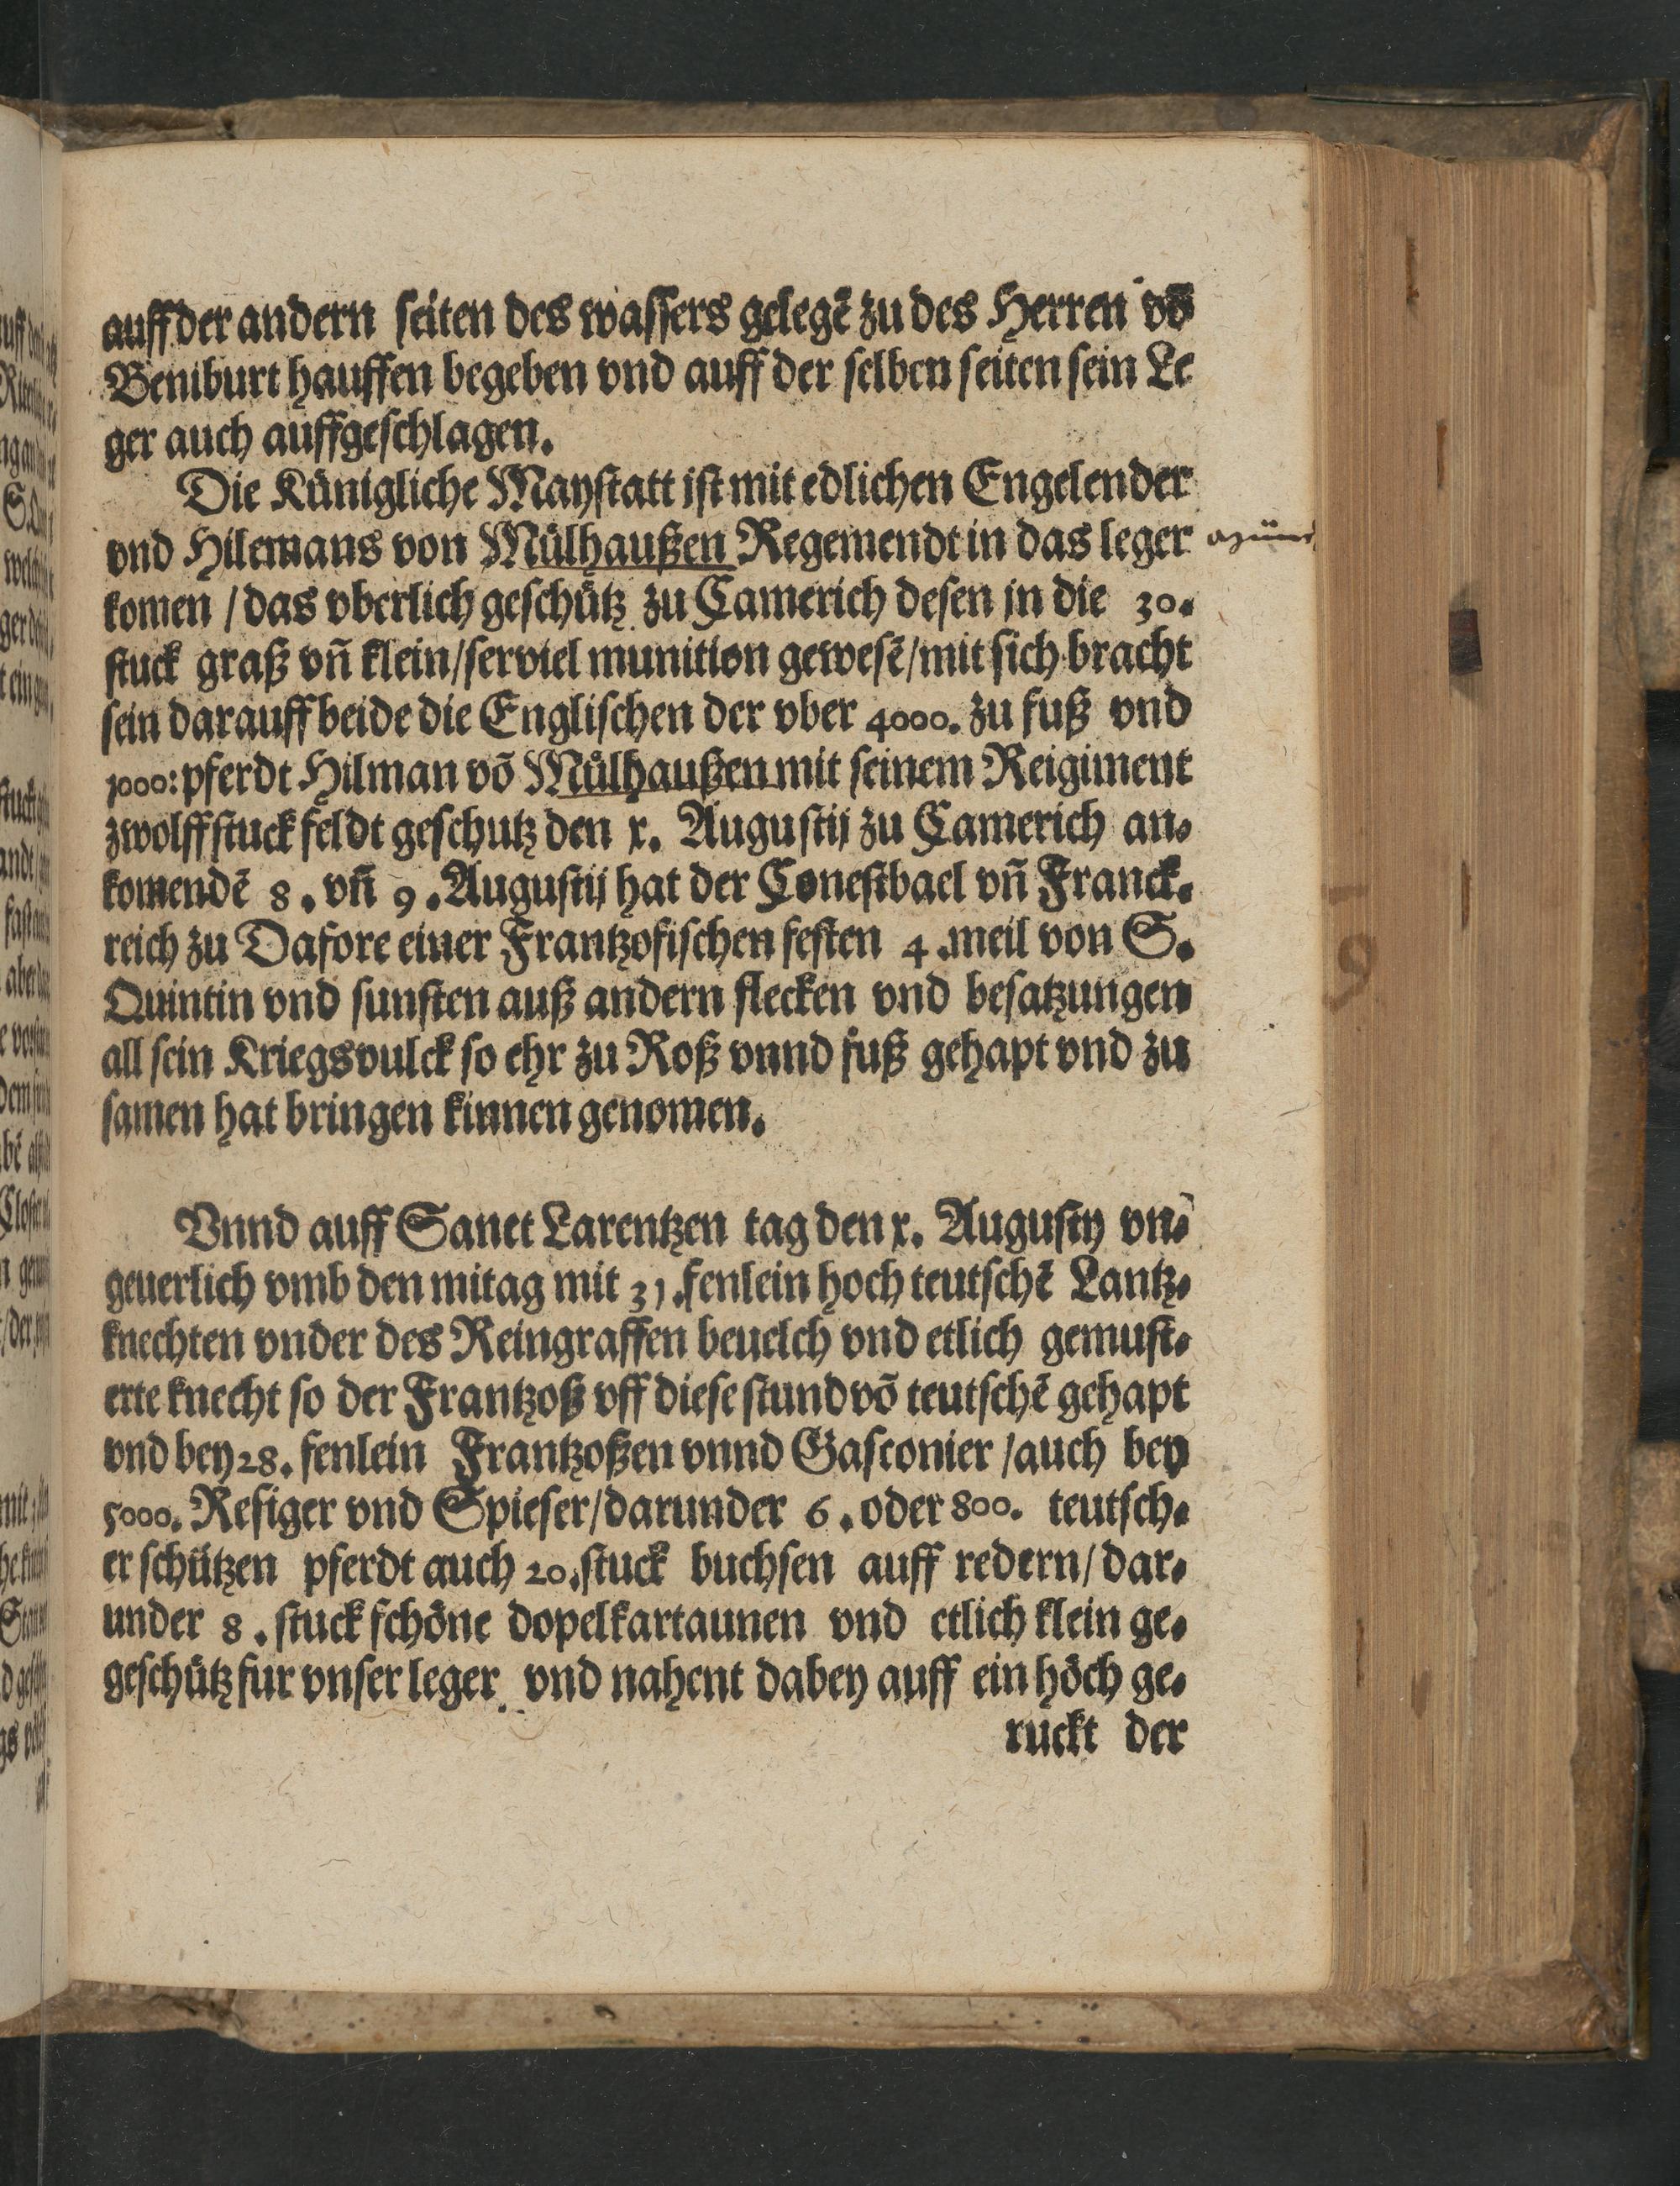 auff der andern seiten des wassers gelegē zu des Herren võ
Beniburt hauffen begeben vnd auff der selben seiten sein Le
ger auch auffgeschlagen.
Die Künigliche Maystatt ist mit edlichen Engelender
vnd Hilemans von Mülhaußen Regemendt in das leger
komen / das vberlich geschütz zu Camerich desen in die 30.
stuck graß vñ klein / serviel munition gewesē / mit sich bracht
sein darauff beide die Englischen der vber 4000. zu fuß vnd
1000: pferdt Hilman võ Mülhaußen mit seinem Reigiment
zwolff stuck feldt geschutz den x. Augustij zu Camerich an⸗
komendē 8. vñ 9. Augustij hat der Conestbael vñ Franck⸗
reich zu Dafore einer Frantzosischen festen 4. meil von S.
Quintin vnd sunsten auß andern flecken vnd besatzungen
all sein Kriegsvulck so ehr zu Roß vnnd fuß gehapt vnd zu
samen hat bringen kinnen genomen.
Vnnd auff Sanct Larentzen tag den x. Augusty vn⸗
geuerlich vmb den mitag mit 31. fenlein hoch teutschē Lantz⸗
knechten vnder des Reingraffen beuelch vnd etlich gemust⸗
erte knecht so der Frantzoß vff diese stund võ teutschē gehapt
vnd bey 28. fenlein Frantzoßen vnnd Gasconier / auch bey
5000. Resiger vnd Spieser / darunder 6. oder 800. teutsch⸗
er schützen pferdt auch 20. stuck buchsen auff redern / dar⸗
under 8. stuck schöne dopelkartaunen vnd etlich klein ge⸗
geschütz fur vnser leger vnd nahent dabey auff ein höch ge⸗
ruckt der
19